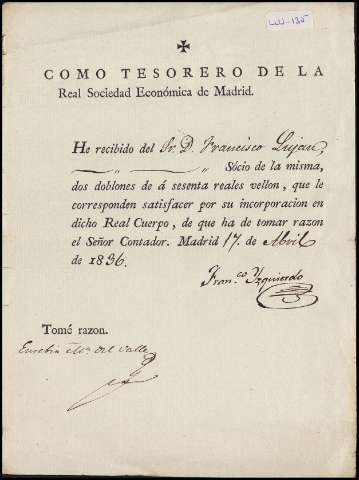 ✠
COMO TESORERO DE LA
Real Sociedad Económica de Madrid.
He recibido del Sr. D. Francisco Lujan,
Sócio de la misma,
dos doblones de á sesenta reales vellon, que le
corresponden satisfacer por su incorporacion en
dicho Real Cuerpo, de que ha de tomar razon
el Señor Contador. Madrid 17. de Abril
de 1836.
Fran.co Yzquierdo
Tomé razon.
Eusebio Ma. del Valle